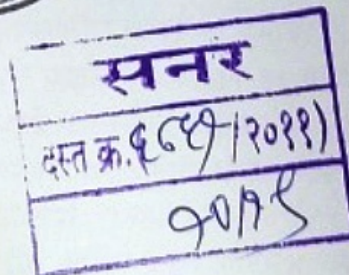 सनर
दस्त क्र. ६८१/२०११)
१०/१९